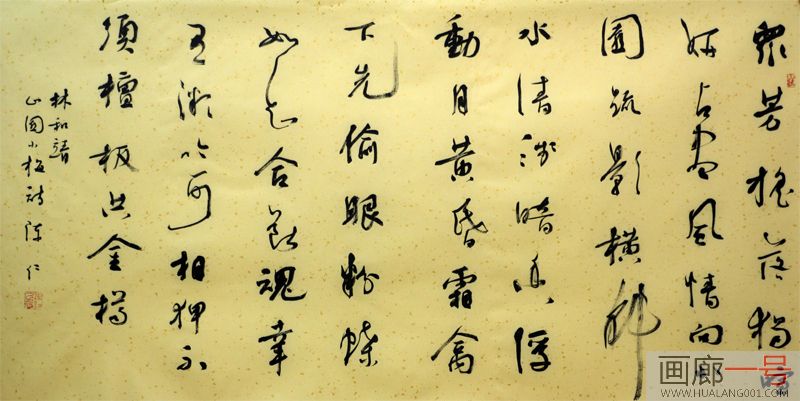 眾芳搖落獨暄
妍占盡風情向小
園疏影橫斜
水清淺暗香浮
動月黃昏霜禽
下先偷眼粉蝶
如知合斷魂幸
有微吟可相狎不
須檀板共金樽
林和靖
山園小梅詩 陳仁
画廊一号
WWW.HUALANG001.COM